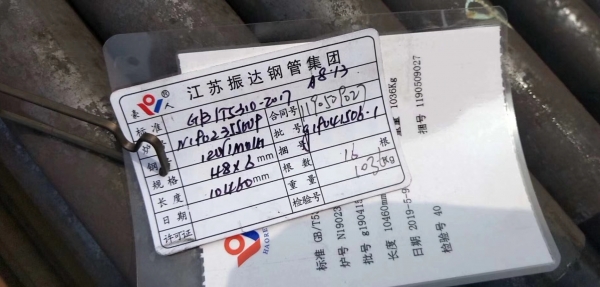 江苏振达钢管集团
A8-13
标准 GB/T5310-2007 合同号
炉号 批号 g19041506-1
钢号 捆号
规格 48×6 mm 根数 16 根
长度 10460mm 重量 1030Kg
日期 检验号
许可证
重量 1036Kg
捆号 1190509027
标准 GB/T5
炉号 N19023
批号 g190415
长度 10460mm
日期 2019-5-9
检验号 40